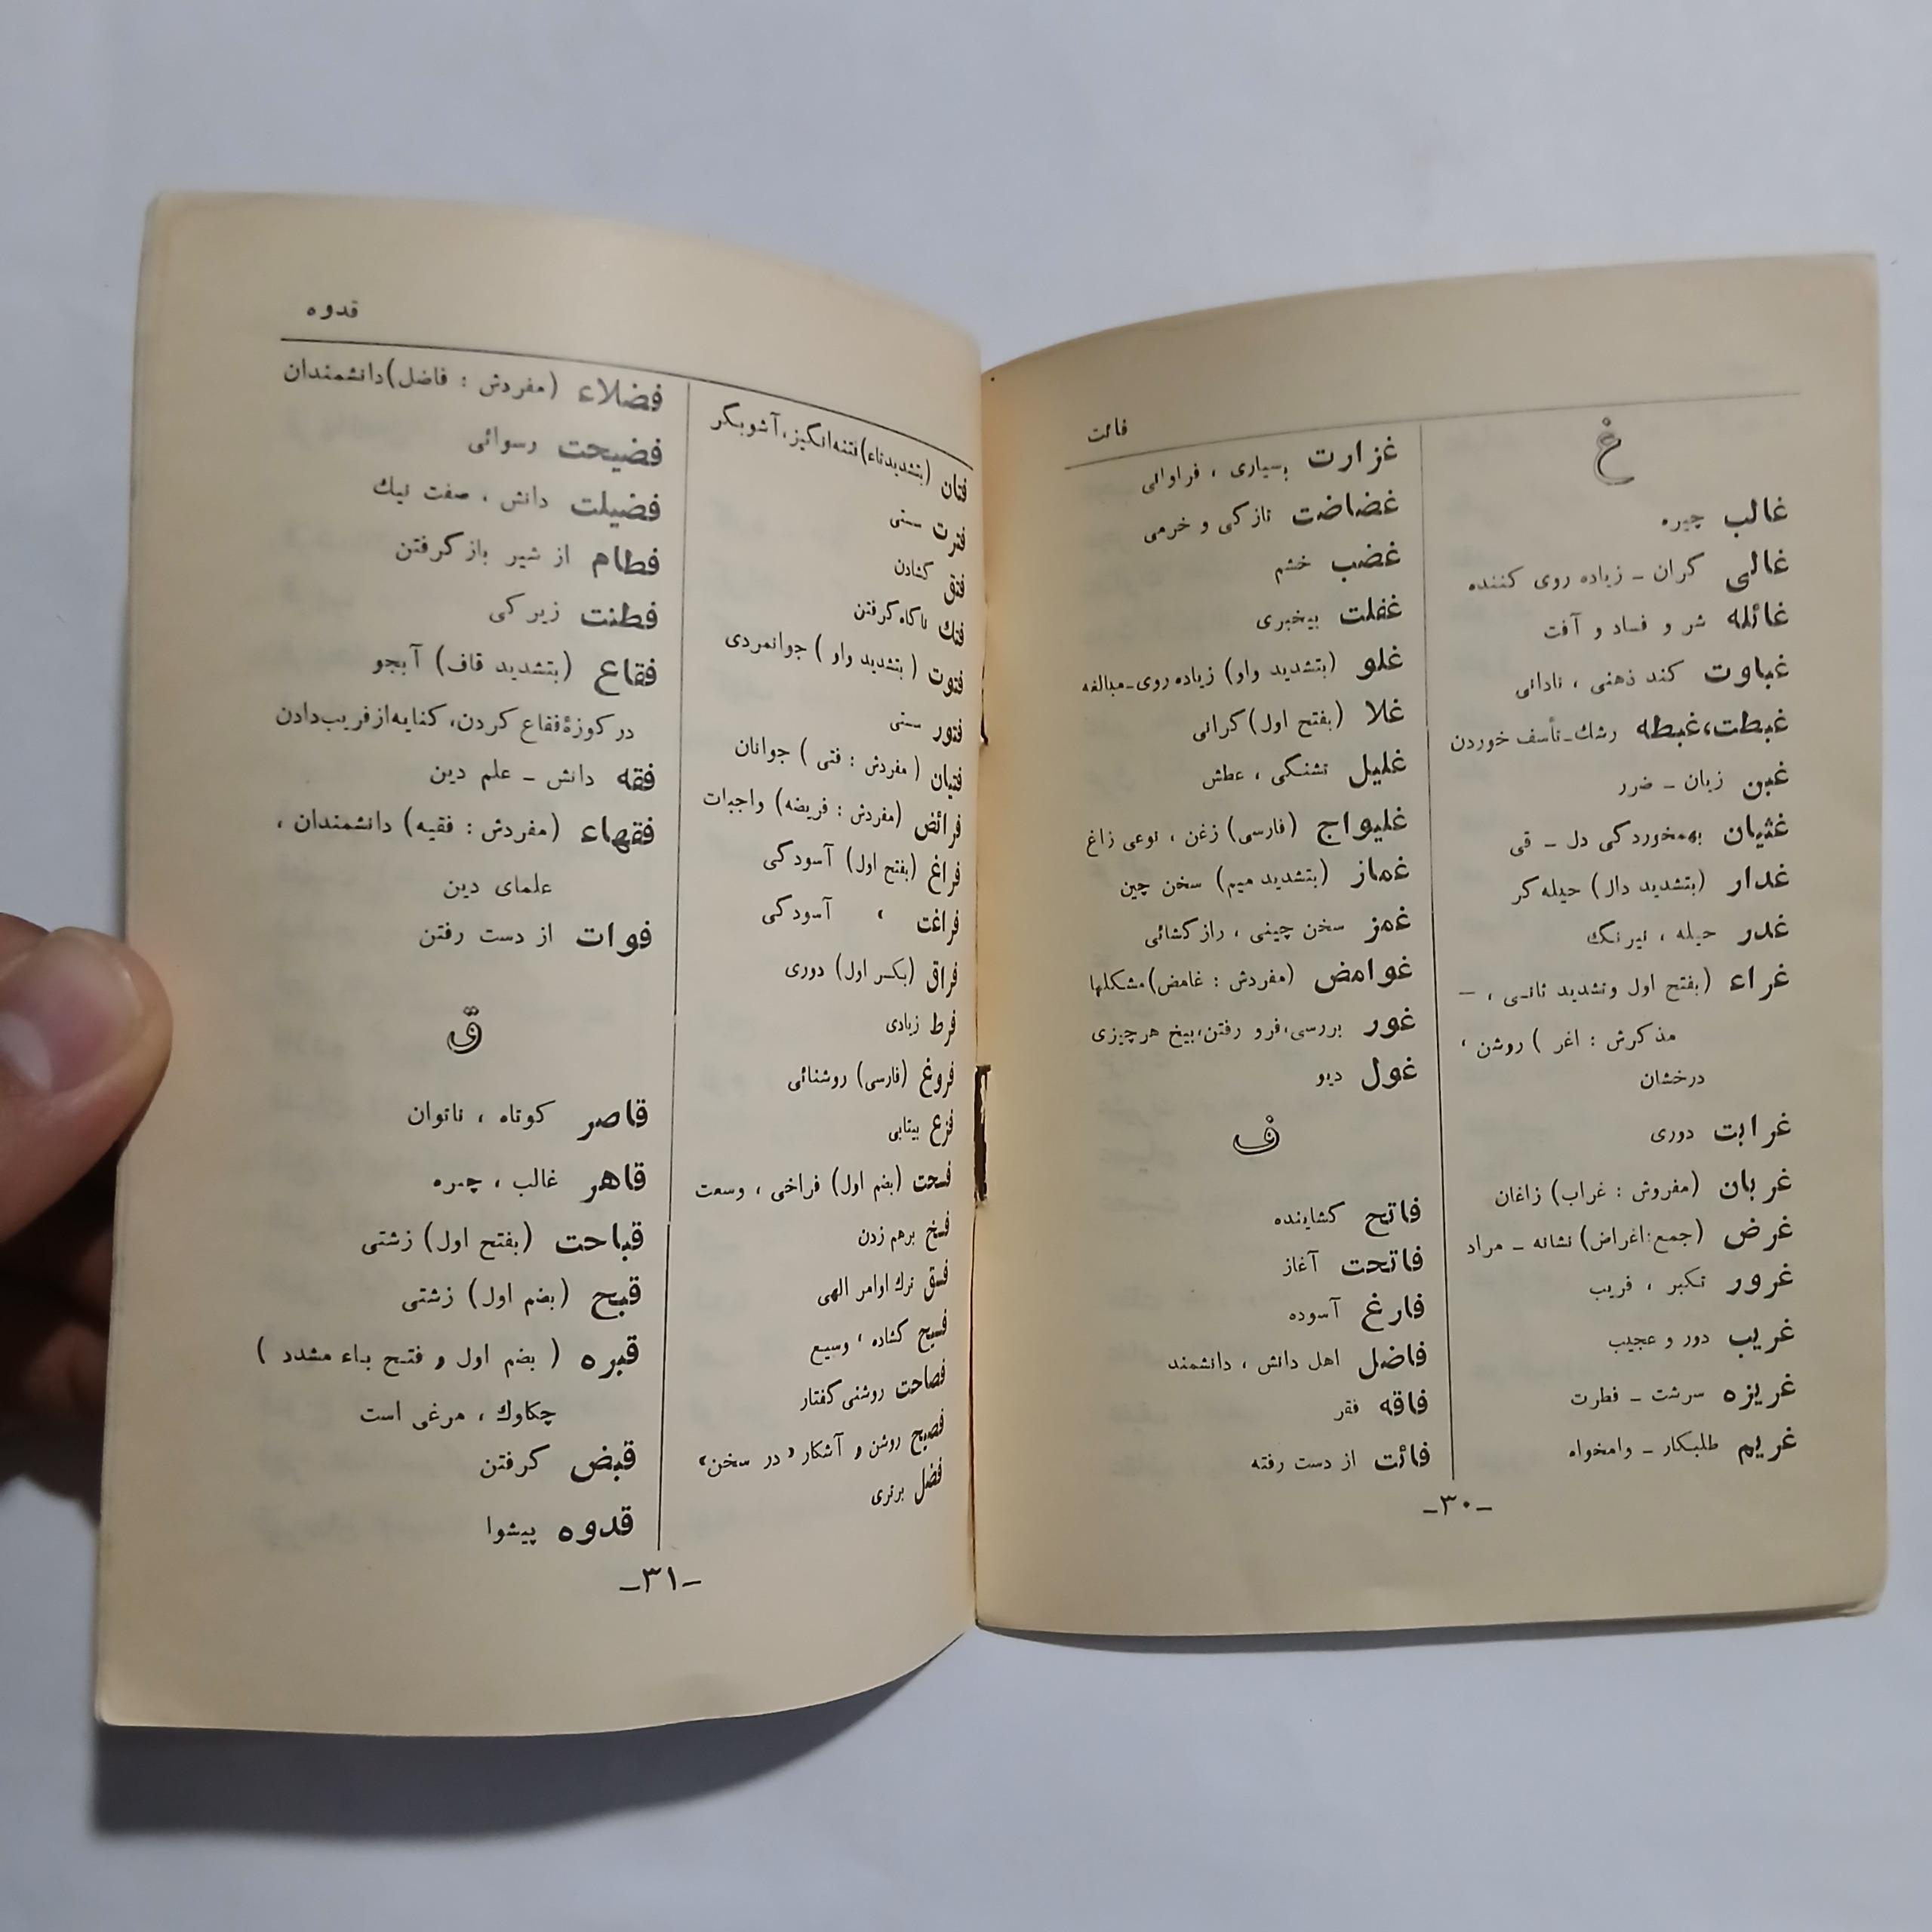 فائت
غ
غالب چیره
غالی گران ـ زیاده روی کننده
غائله شر و فساد و آفت
غباوت کند ذهنی ، نادانی
غبطت، غبطه رشك ـ تأسف خوردن
غبن زیان ـ ضرر
غثیان بهمخوردگی دل ـ قی
غدار (بتشدید دال) حیله گر
غدر حیله ، نیرنگ
غراء (بفتح اول وتشدید ثانی ، ـ
مذکرش : اغر ) روشن ،
درخشان
غرابت دوری
غربان (مفروش : غراب) زاغان
غرض (جمع:اغراض) نشانه ـ مراد
غرور تکبر ، فریب
غریب دور و عجیب
غریزه سرشت ـ فطرت
غریم طلبکار ـ وامخواه
غزارت بسیاری ، فراوانی
غضاضت تازگی و خرمی
غضب خشم
غفلت بیخبری
غلو (بتشدید واو) زیاده روی ـ مبالغه
غلا (بفتح اول) گرانی
غلیل تشنگی ، عطش
غلیواج (فارسی) زغن ، نوعی زاغ
غماز (بتشدید میم) سخن چین
غمز سخن چینی ، رازگشائی
غوامض (مفردش : غامض) مشکلها
غور بررسی، فرو رفتن، بیخ هرچیزی
غول دیو
ف
فاتح گشاینده
فاتحت آغاز
فارغ آسوده
فاضل اهل دانش ، دانشمند
فاقه فقر
فائت از دست رفته
ـ۳۰ـ
قدوه
فتان (بتشدیدتاء) فتنه انگیز، آشوبگر
فترت سستی
فتق گشادن
فتك ناگاه گرفتن
فتوت ( بتشدید واو ) جوانمردی
فتور سستی
فتیان ( مفردش : فتی ) جوانان
فرائض (مفردش : فریضه) واجبات
فراغ (بفتح اول) آسودگی
فراغت ، آسودگی
فراق (بکسر اول) دوری
فرط زیادی
فروغ (فارسی) روشنائی
فزع بیتابی
فسحت (بضم اول) فراخی ، وسعت
فسخ برهم زدن
فسق ترك اوامر الهی
فسیح گشاده ، وسیع
فصاحت روشنی گفتار
فصیح روشن و آشکار «در سخن»
فضل برتری
فضلاء (مفردش : فاضل) دانشمندان
فضیحت رسوائی
فضیلت دانش ، صفت نیك
فطام از شیر بازگرفتن
فطنت زیرکی
فقاع (بتشدید قاف) آبجو
در کوزۀ فقاع کردن، کنایه از فریب دادن
فقه دانش ـ علم دین
فقهاء (مفردش : فقیه) دانشمندان ،
علمای دین
فوات از دست رفتن
ق
قاصر کوتاه ، ناتوان
قاهر غالب ، چیره
قباحت (بفتح اول) زشتی
قبح (بضم اول) زشتی
قبره ( بضم اول و فتح باء مشدد )
چکاوك ، مرغی است
قبض گرفتن
قدوه پیشوا
ـ۳۱ـ